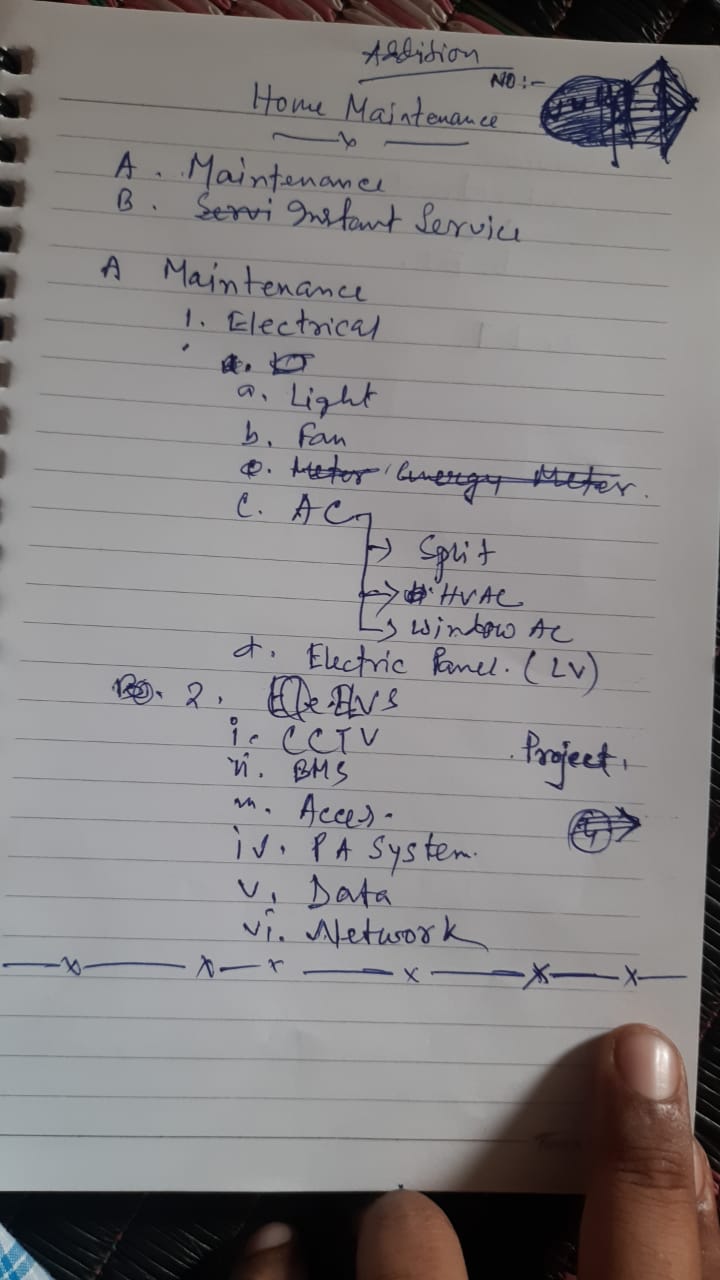 Addition
NO :-
Home Maintenance
A. Maintenance
B. Servi Instant Service
A Maintenance
1. Electrical
a. Light
b. Fan
c. Meter Energy Meter.
C. AC
→ Split
→ HVAC
→ Window AC
d. Electric Panel. (LV)
2. ELVS
i. CCTV
Project.
ii. BMS
iii. Acces.
iv. PA System.
v. Data
vi. Network